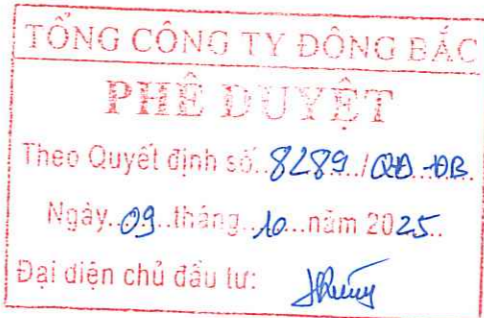 TỔNG CÔNG TY ĐÔNG BẮC
PHÊ DUYỆT
Theo Quyết định số..8289../QĐ..-ĐB.
Ngày..09..tháng..10...năm 2025..
Đại diện chủ đầu tư: